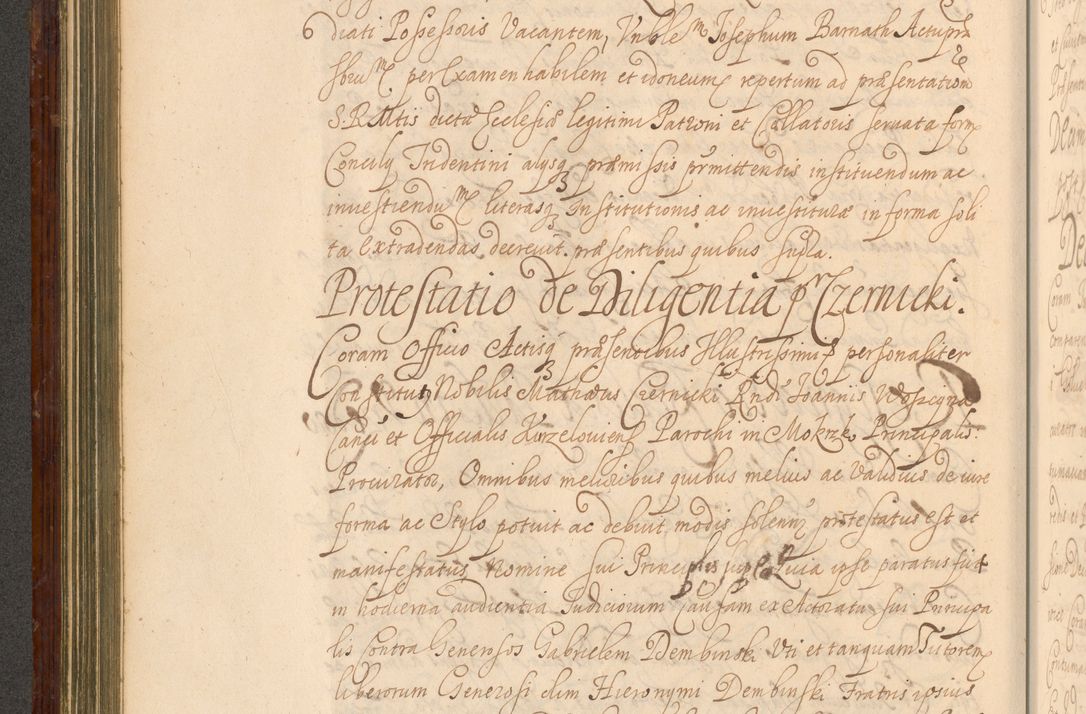 6 diati Possessoris Vacantem, Vnble᷑m Josephum Barnath Actuprƶ
sbru᷑m per Examen habilem et idoneum repertum ad præsentation
S. R. Mtis dictæ Ecclesiæ legitimi Patroni et Collatoris servata form
Concilij Tridentini alysqз præmissis præmittendis instituendum ac
investiendum literasqз Institutionis ac investituræ in forma soli
ta Extradendas decrevit. præsentibus quibus supra.
Protestatio de Diligentia p Czernicki.
Coram Officio Actisqз præsentibus Illustrissimi personaliter
Constitut9 Nobilis Mathæus Czernicki Rndi Joannis Woszczyna
Canci et Officialis Kurzeloviens Parochi in Mokrzk Principalis.
Procurator, Omnibus melioribus quibus melius ac validius de iure
forma ac Stylo potuit ac debuit modis solenn protestatus est et
manifestatus Nomine sui Principlis Quia ipse paratus fuit
in hodierna audientia Judiciorum Causam ex Actoratu sui Principa
lis Contra Generosos Gabrielem Dembinski Uti et tanquam Tutorem
liberorum Generosi olim Hieronymi Dembinski Fratris ipsius